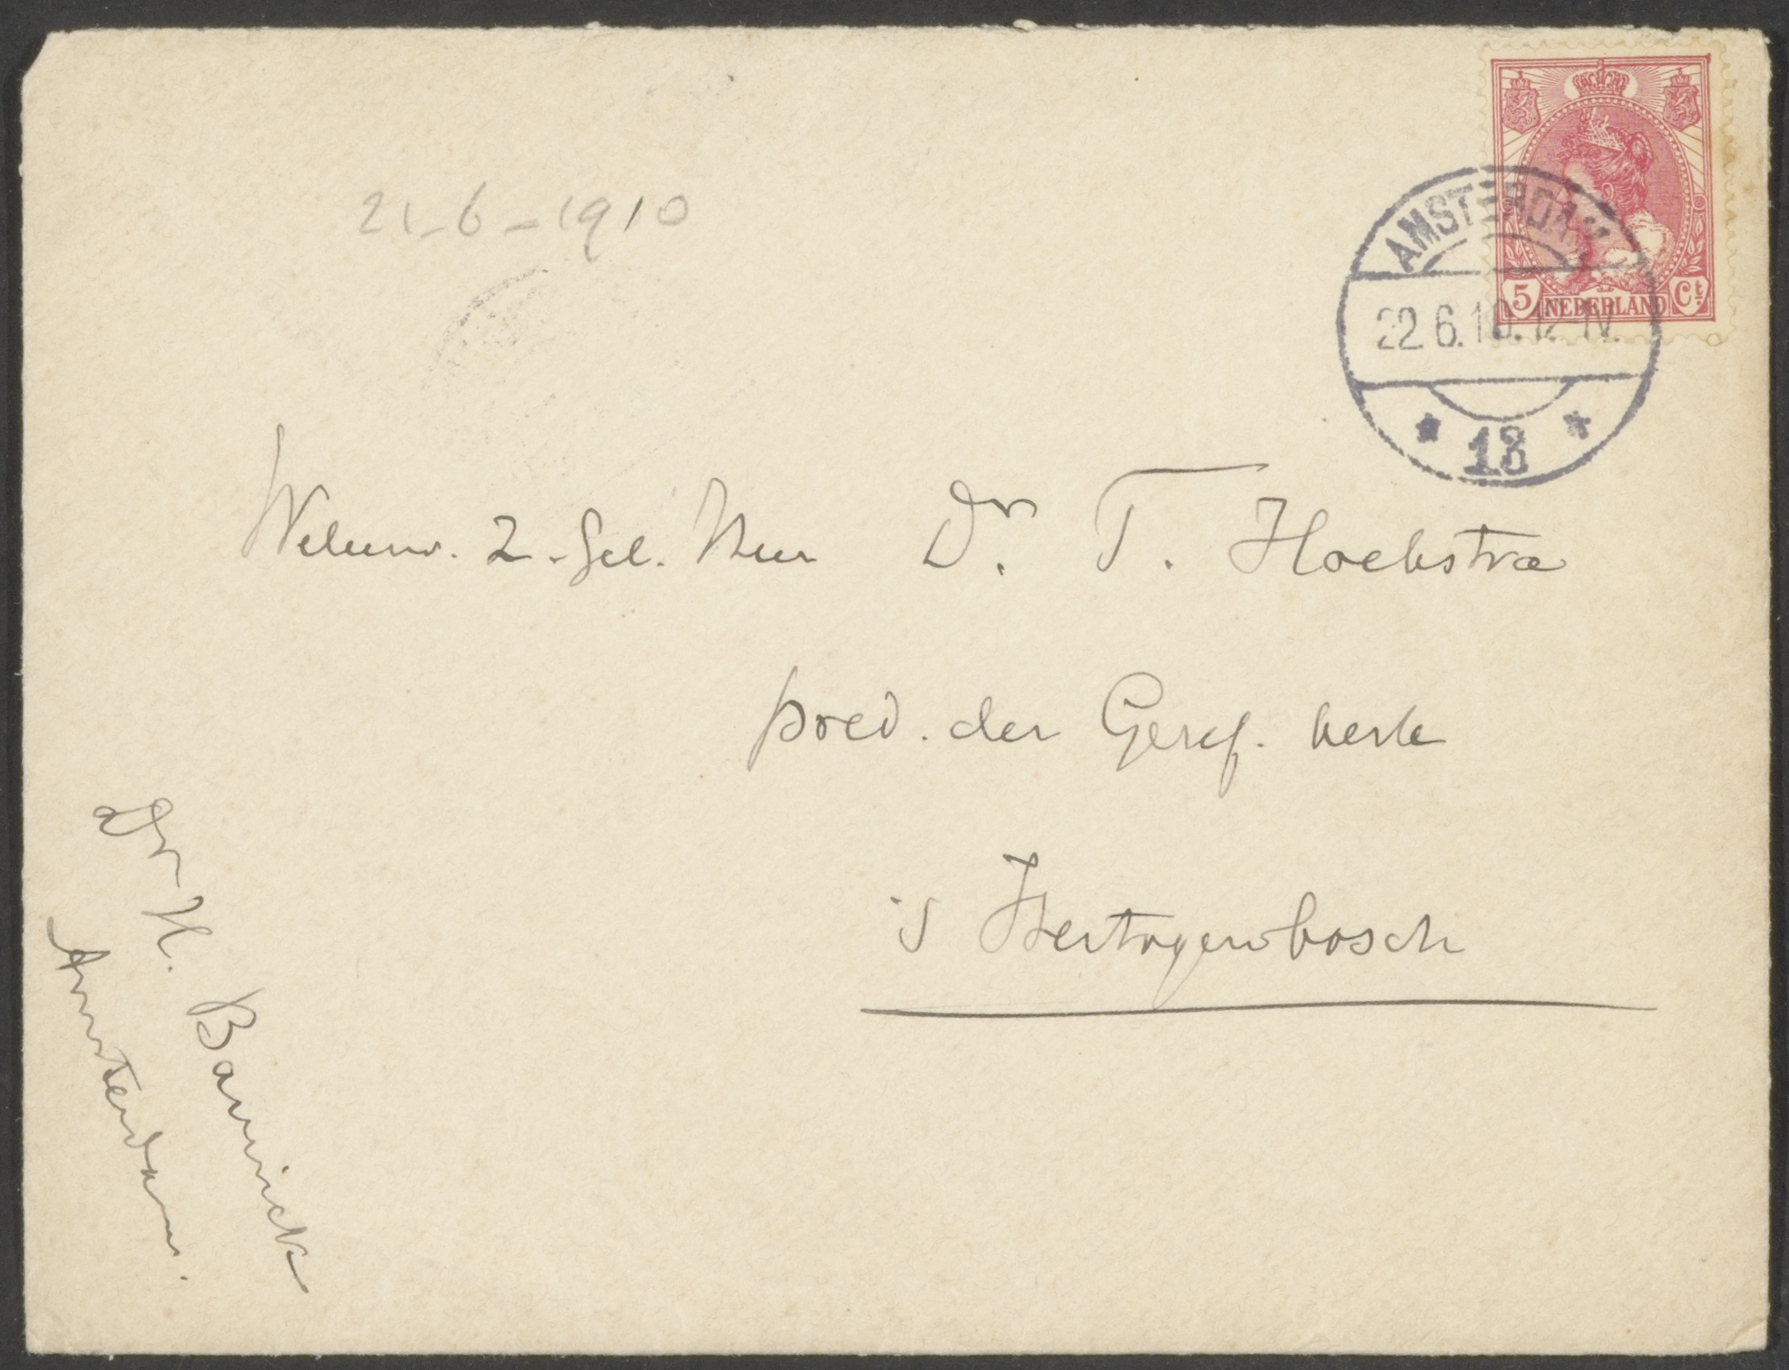 21-6-1910
AMSTERDAM
22.6.10. 12-1V.
* 18 *
5 NEDERLAND Ct
Weleerw. Z. Gel. Heer Dr. T. Hoekstra
pred. der Geref. kerk
's Hertogenbosch
Dr H. Bavinck
Amsterdam.